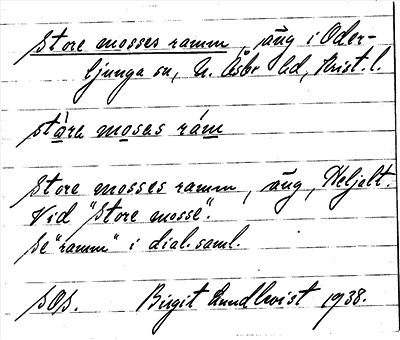 Store mosses ramm, äng i Oder-
ljunga sn, N. Åsbo hd, Krist. l.
stǻra mosas rám
Store mosses ramm, äng, Heljalt.
Vid "Store mosse".
Se "ramm" i dial. saml.
SOS. Birgit Lundkvist 1938.